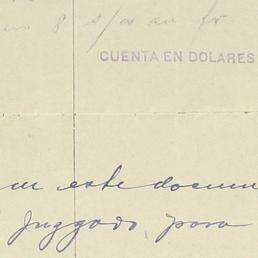 8 s/a en fr.
CUENTA EN DOLARES
en este docum
Juzgado, para